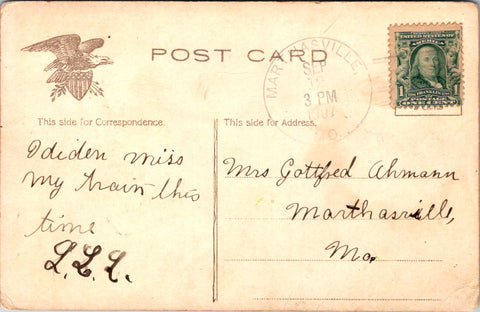 POST CARD
MARTHASVILLE,
SEP
3 PM
MO.
1
AMERICA
FRANKLIN
POSTAGE
ONE CENT
This side for Correspondence.
This side for Address.
I diden miss
my train this
time
L.L.L.
Mrs Gottfred Ahmann
Marthasville,
Mo.